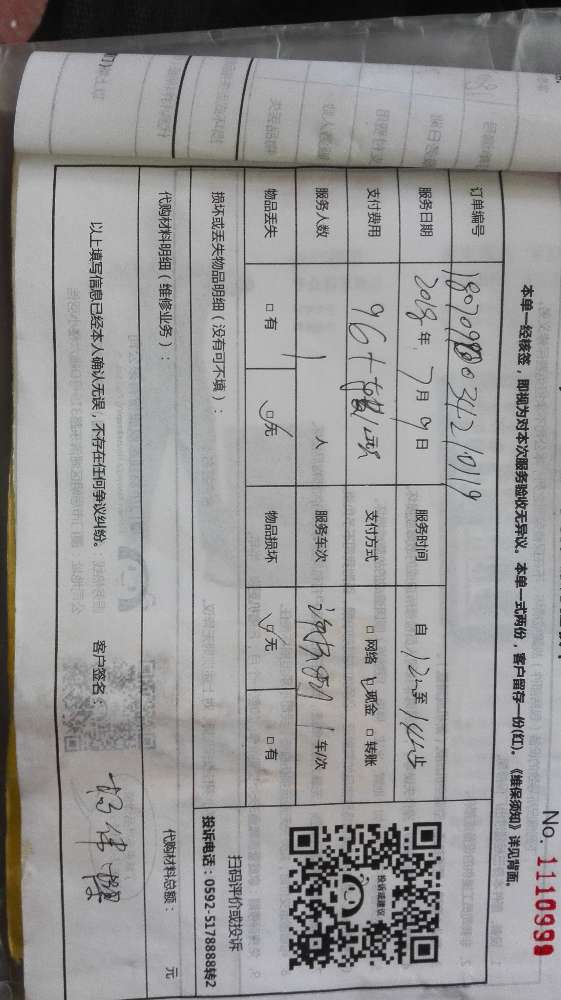 No. 1110999
本单一经核签，即视为对本次服务验收无异议。本单一式两份，客户留存一份(红)。《维保须知》详见背面。
订单编号
服务日期 2018年 7月 9日 服务时间 自 12 至 14 止
支付费用 96+ 支付方式 □ 网络 ☑ 现金 □ 转账
服务人数 1 人 服务车次 1 车/次
物品丢失 □ 有 ☑ 无 物品损坏 ☑ 无 □ 有
投诉或建议
扫码评价或投诉
投诉电话：0592-5178888转2
损坏或丢失物品明细（没有可不填）：
代购材料明细（维修业务）： 代购材料总额： 元
以上填写信息已经本人确认无误，不存在任何争议纠纷。 客户签名：